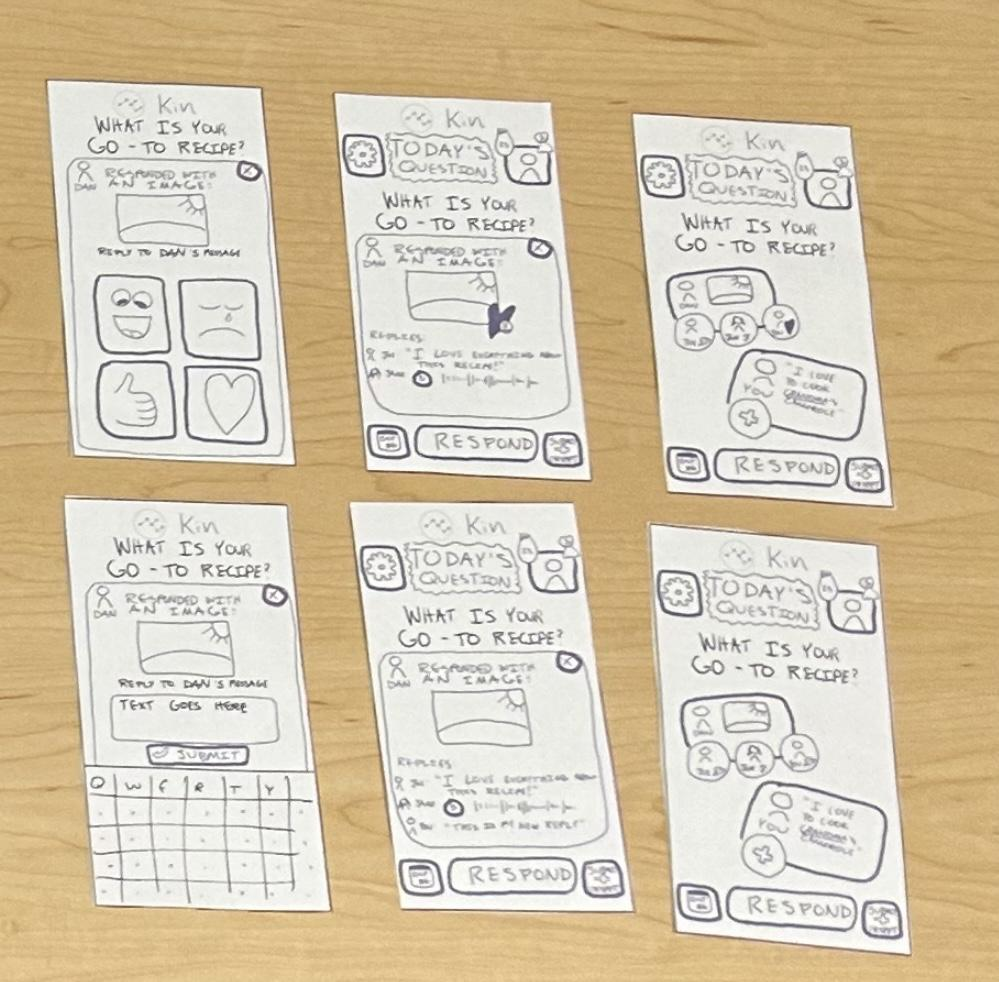 Kin
WHAT IS YOUR
GO-TO RECIPE?
DAN
RESPONDED WITH
AN IMAGE:
X
REPLY TO DAN'S MESSAGE
Kin
TODAY'S
QUESTION
WHAT IS YOUR
GO-TO RECIPE?
DAN
RESPONDED WITH
AN IMAGE:
X
REPLIES:
"I LOVE EVERYTHING
THIS
RESPOND
Kin
TODAY'S
QUESTION
WHAT IS YOUR
GO-TO RECIPE?
DAN
YOU
"I LOVE
TO COOK
RESPOND
Kin
WHAT IS YOUR
GO-TO RECIPE?
DAN
RESPONDED WITH
AN IMAGE:
X
REPLY TO DAN'S MESSAGE
TEXT GOES HERE
SUBMIT
Q W E R T Y
Kin
TODAY'S
QUESTION
WHAT IS YOUR
GO-TO RECIPE?
DAN
RESPONDED WITH
AN IMAGE:
X
REPLIES
"I LOVE EVERYTHING
THIS
"THIS IS MY NEW REPLY"
RESPOND
Kin
TODAY'S
QUESTION
WHAT IS YOUR
GO-TO RECIPE?
DAN
YOU
"I LOVE
TO COOK
RESPOND